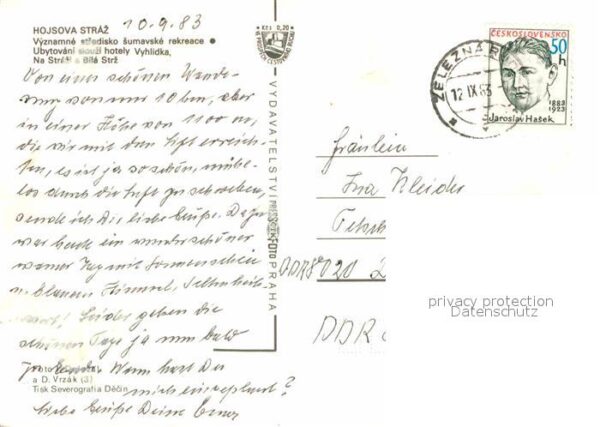 10.9.83
HOJSOVA STRÁŽ
Významné středisko šumavské rekreace •
Ubytování slouží hotely Vyhlídka,
Na Stráži a Bílá Strž
Von einer schönen Wande-
rung von nur 10 km, aber
in einer Höhe von 1100 m,
die wir mit dem Lift erreich-
ten, es ist ja so schön, mühe-
los durch die Luft zu schweben,
sende ich Dir liebe Grüße. Dazu
war heute ein wunderschöner
warmer Tag mit Sonnenschein
u. blauem Himmel,
Leider gehen die
schönen Tage ja nun bald
zu Ende. Wann hast Du
mich eingeplant?
Liebe Grüße Deine
a D. Vrzák (3)
Tisk Severografia Děčín
Kčs 0,20
VYDAVATELSTVÍ PRESSFOTO PRAHA
ČESKOSLOVENSKO
50 h
1883
1923
Jaroslav Hašek
ŽELEZNÁ R
12.IX.83
Fräulein
Ina Kleider
DDR 8020
DDR
privacy protection
Datenschutz